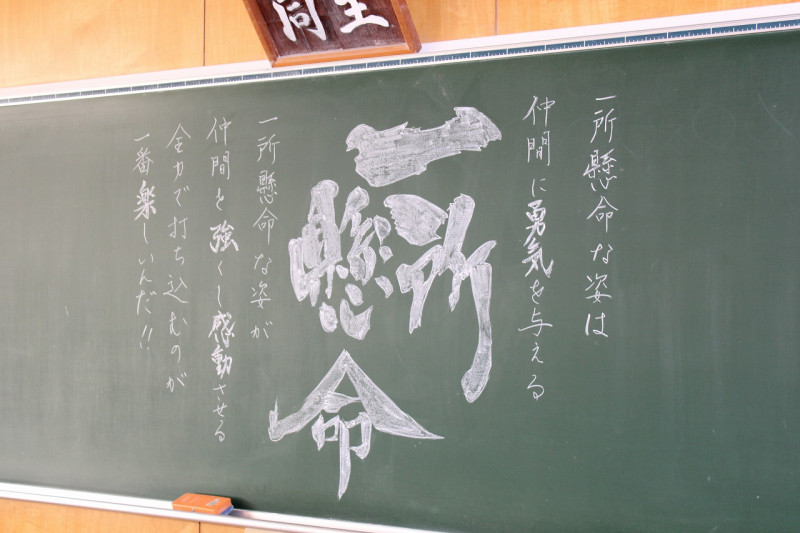 一所懸命な姿は
仲間に勇気を与える
一所懸命
一所懸命な姿が
仲間を強くし感動させる
全力で打ち込むのが
一番楽しいんだ!!